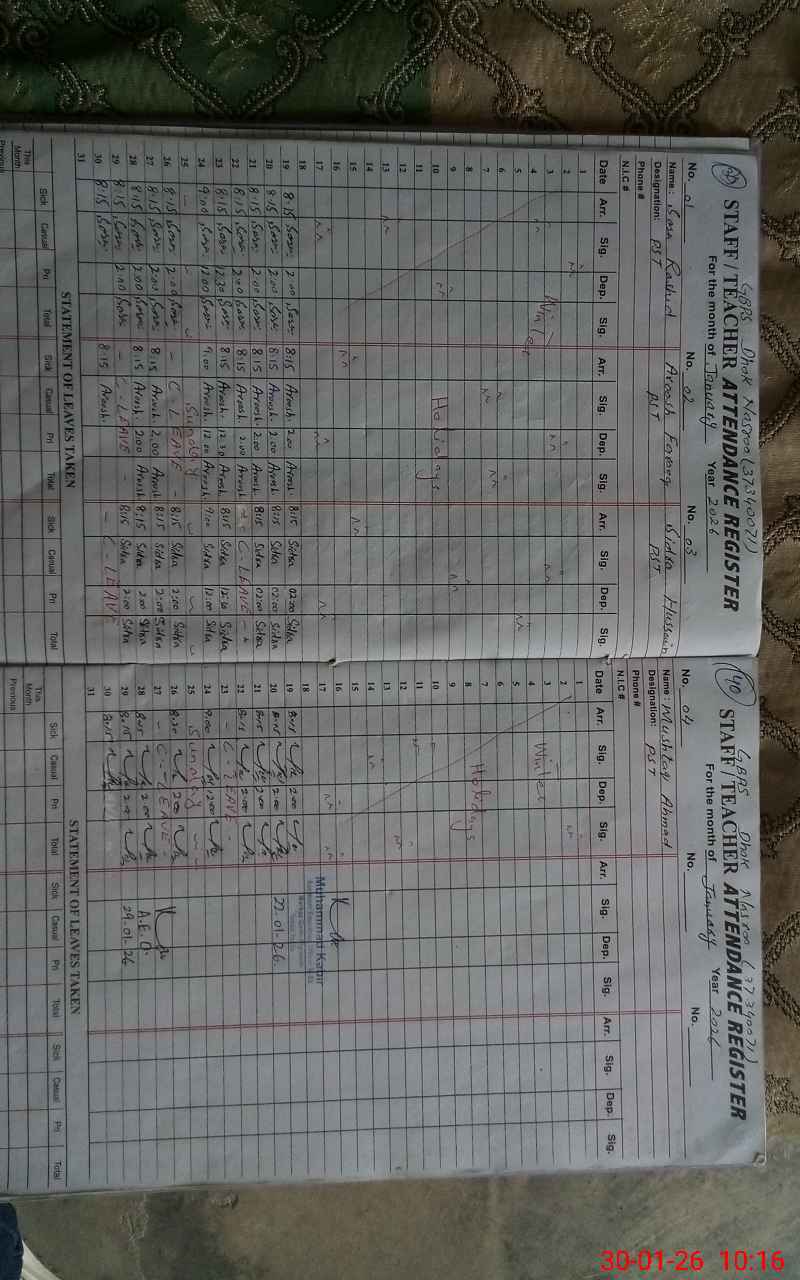 GBPS Dhok Nasroo (37340071)
39 STAFF / TEACHER ATTENDANCE REGISTER
For the month of January Year 2026
No. 01 No. 02 No. 03
Name: Rashid Aroosh Sidra Hussain
Designation: PST PST PST
Phone #
N.I.C #
Date Arr. Sig. Dep. Sig. Arr. Sig. Dep. Sig. Arr. Sig. Dep. Sig.
1
2
3
4 Winter
5
6
7
8
9
10 Holidays
11
12
13
14
15
16
17
18
19 8:15 2:00 8:15 Aroosh 2.00 Aroosh 8:15 Sidra 02:00 Sidra
20 8:15 2:00 8:15 Aroosh 2.00 Aroosh 8:15 Sidra 02:00 Sidra
21 8:15 2:00 8:15 Aroosh 2.00 Aroosh 8:15 Sidra 02:00 Sidra
22 8:15 2:00 8:15 Aroosh 2.00 Aroosh C-LEAVE
23 8:15 12:30 8:15 Aroosh 12:30 Aroosh 8:15 Sidra 12:30 Sidra
24 9:00 12:00 9:00 Aroosh 12:00 Aroosh 9:00 Sidra 12:00 Sidra
25 Sunday
26 8:15 2:00 - C-LEAVE - 8:15 Sidra 2:00 Sidra
27 8:15 2:00 8:15 Aroosh 2.00 Aroosh 8:15 Sidra 2:00 Sidra
28 8:15 2:00 8:15 Aroosh 2:00 Aroosh 8:15 Sidra 2:00 Sidra
29 8:15 2:00 - C-LEAVE - 8:15 Sidra 2:00 Sidra
30 8:15 8:15 Aroosh - C-LEAVE
31
STATEMENT OF LEAVES TAKEN
Sick Casual Pri Total Sick Casual Pri Total Sick Casual Pri Total
This Month
Previous
GBPS Dhok Nasroo (37340071)
40 STAFF / TEACHER ATTENDANCE REGISTER
For the month of January Year 2026
No. 04 No. No.
Name: Mushtaq Ahmad
Designation: PST
Phone #
N.I.C #
Date Arr. Sig. Dep. Sig. Arr. Sig. Dep. Sig. Arr. Sig. Dep. Sig.
1
2
3
4 Winter
5
6
7
8 Holidays
9
10
11
12
13
14
15
16
17 Muhammad Kabir
18
19 8:15 2:00
20 8:15 2:00 22.01.26
21 8:15 2:00
22 8:15 2:00
23 - C-LEAVE -
24 9:00 12:00
25 Sunday
26 8:20 2:00
27 - C-LEAVE -
28 8:15 2:00 A.E.O.
29 8:15 2:00 29.01.26
30 8:15
31
STATEMENT OF LEAVES TAKEN
Sick Casual Pri Total Sick Casual Pri Total Sick Casual Pri Total
This Month
Previous
30-01-26 10:16